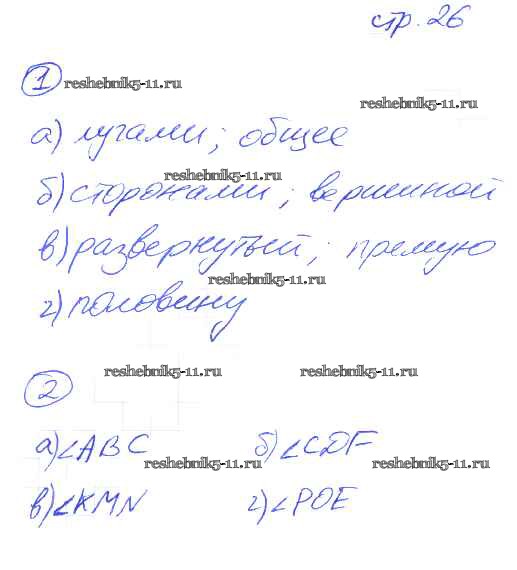 стр. 26
1
reshebnik5-11.ru
reshebnik5-11.ru
а) лучами; общее
reshebnik5-11.ru
б) сторонами; вершиной
в) развернутый; прямую
reshebnik5-11.ru
г) половину
reshebnik5-11.ru reshebnik5-11.ru
2
а) ∠ABC б) ∠CDF
reshebnik5-11.ru reshebnik5-11.ru
в) ∠KMN г) ∠POE